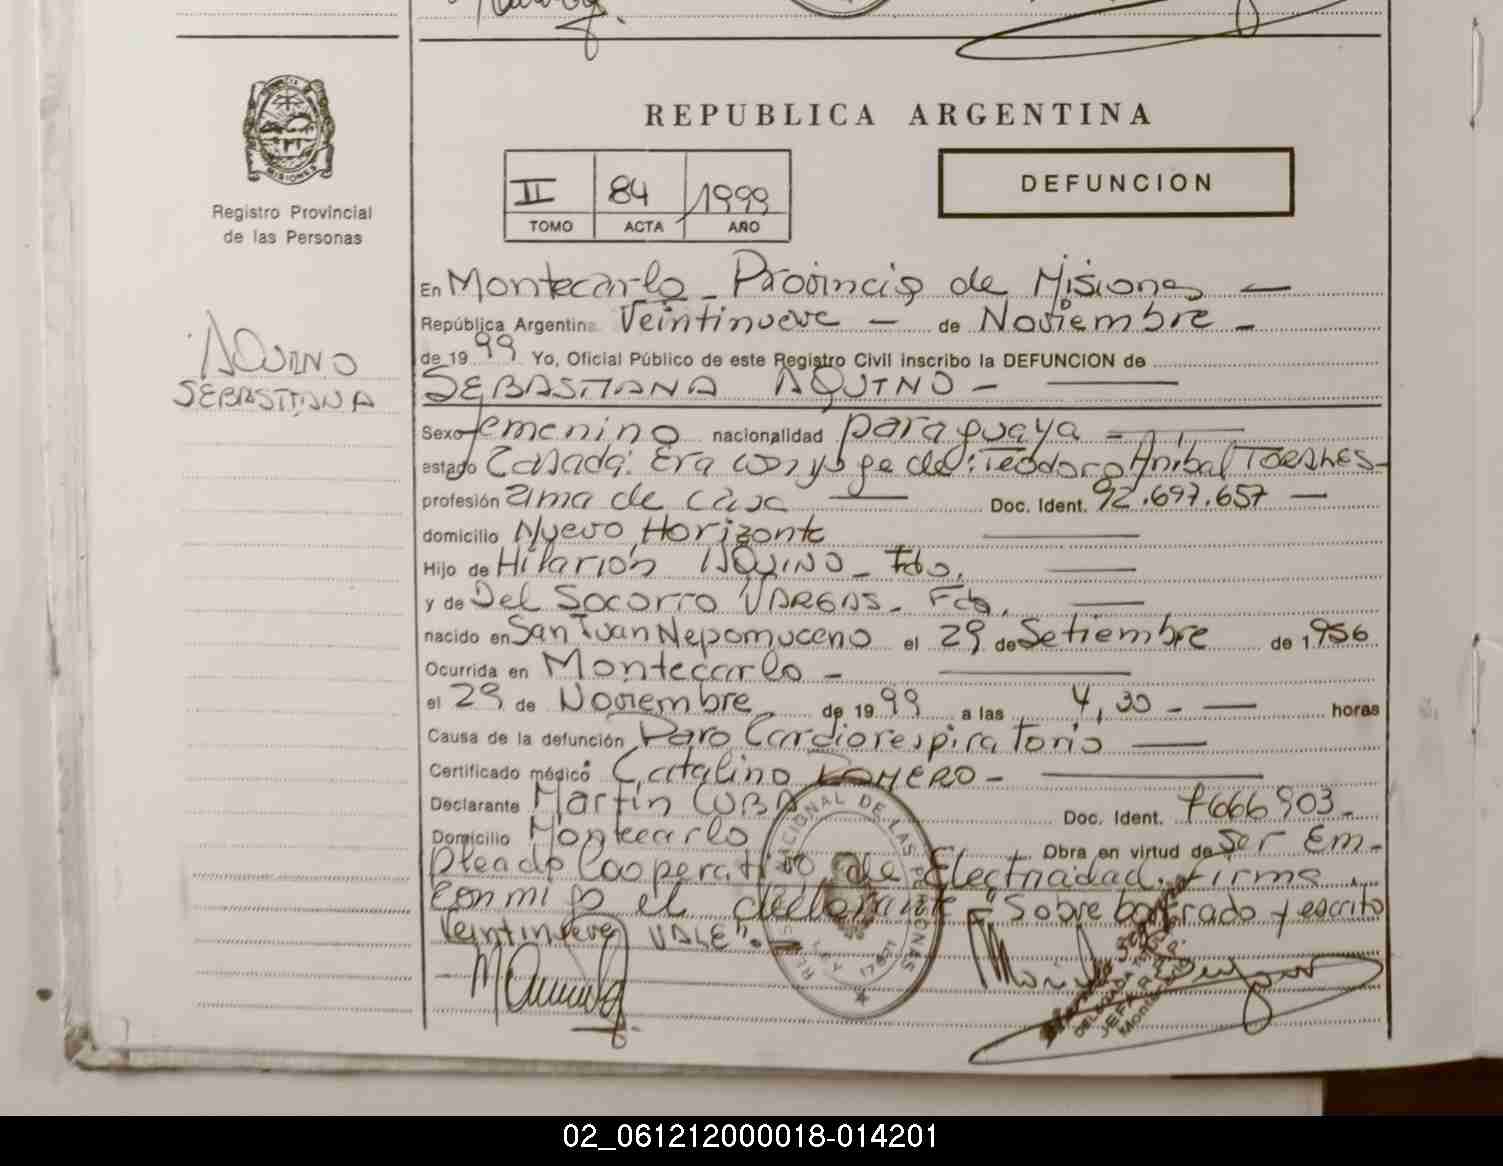 REPUBLICA ARGENTINA
DEFUNCION
II 84 1999
TOMO ACTA AÑO
MISIONES
Registro Provincial
de las Personas
AQUINO
SEBASTIANA
En Montecarlo - Provincia de Misiones —
República Argentina Veintinueve — de Noviembre -
de 19 99 Yo, Oficial Público de este Registro Civil inscribo la DEFUNCION de
SEBASTIANA AQUINO -
Sexo femenino nacionalidad paraguaya -
estado Casada: Era conyuge de: Teodoro Anibal TORALES-
profesión ama de casa — Doc. Ident. 92.697.657 —
domicilio Nuevo Horizonte
Hijo de Hilarión AQUINO - Fdo.
y de Del Socorro VARGAS - Fda.
nacido en San Juan Nepomuceno el 29 de Setiembre de 1956
Ocurrida en Montecarlo -
el 29 de Noviembre de 19 99 a las 4,30 - — horas
Causa de la defunción Paro Cardiorespiratorio —
Certificado médico Catalino ROMERO -
Declarante Martín CUBA Doc. Ident. 7666903-
Domicilio Montecarlo Obra en virtud de Ser Em-
pleado Cooperativa de Electricidad. Firma
conmigo el declarante - "Sobre borrado y escrito
Veintinueve VALE". -
02_061212000018-014201